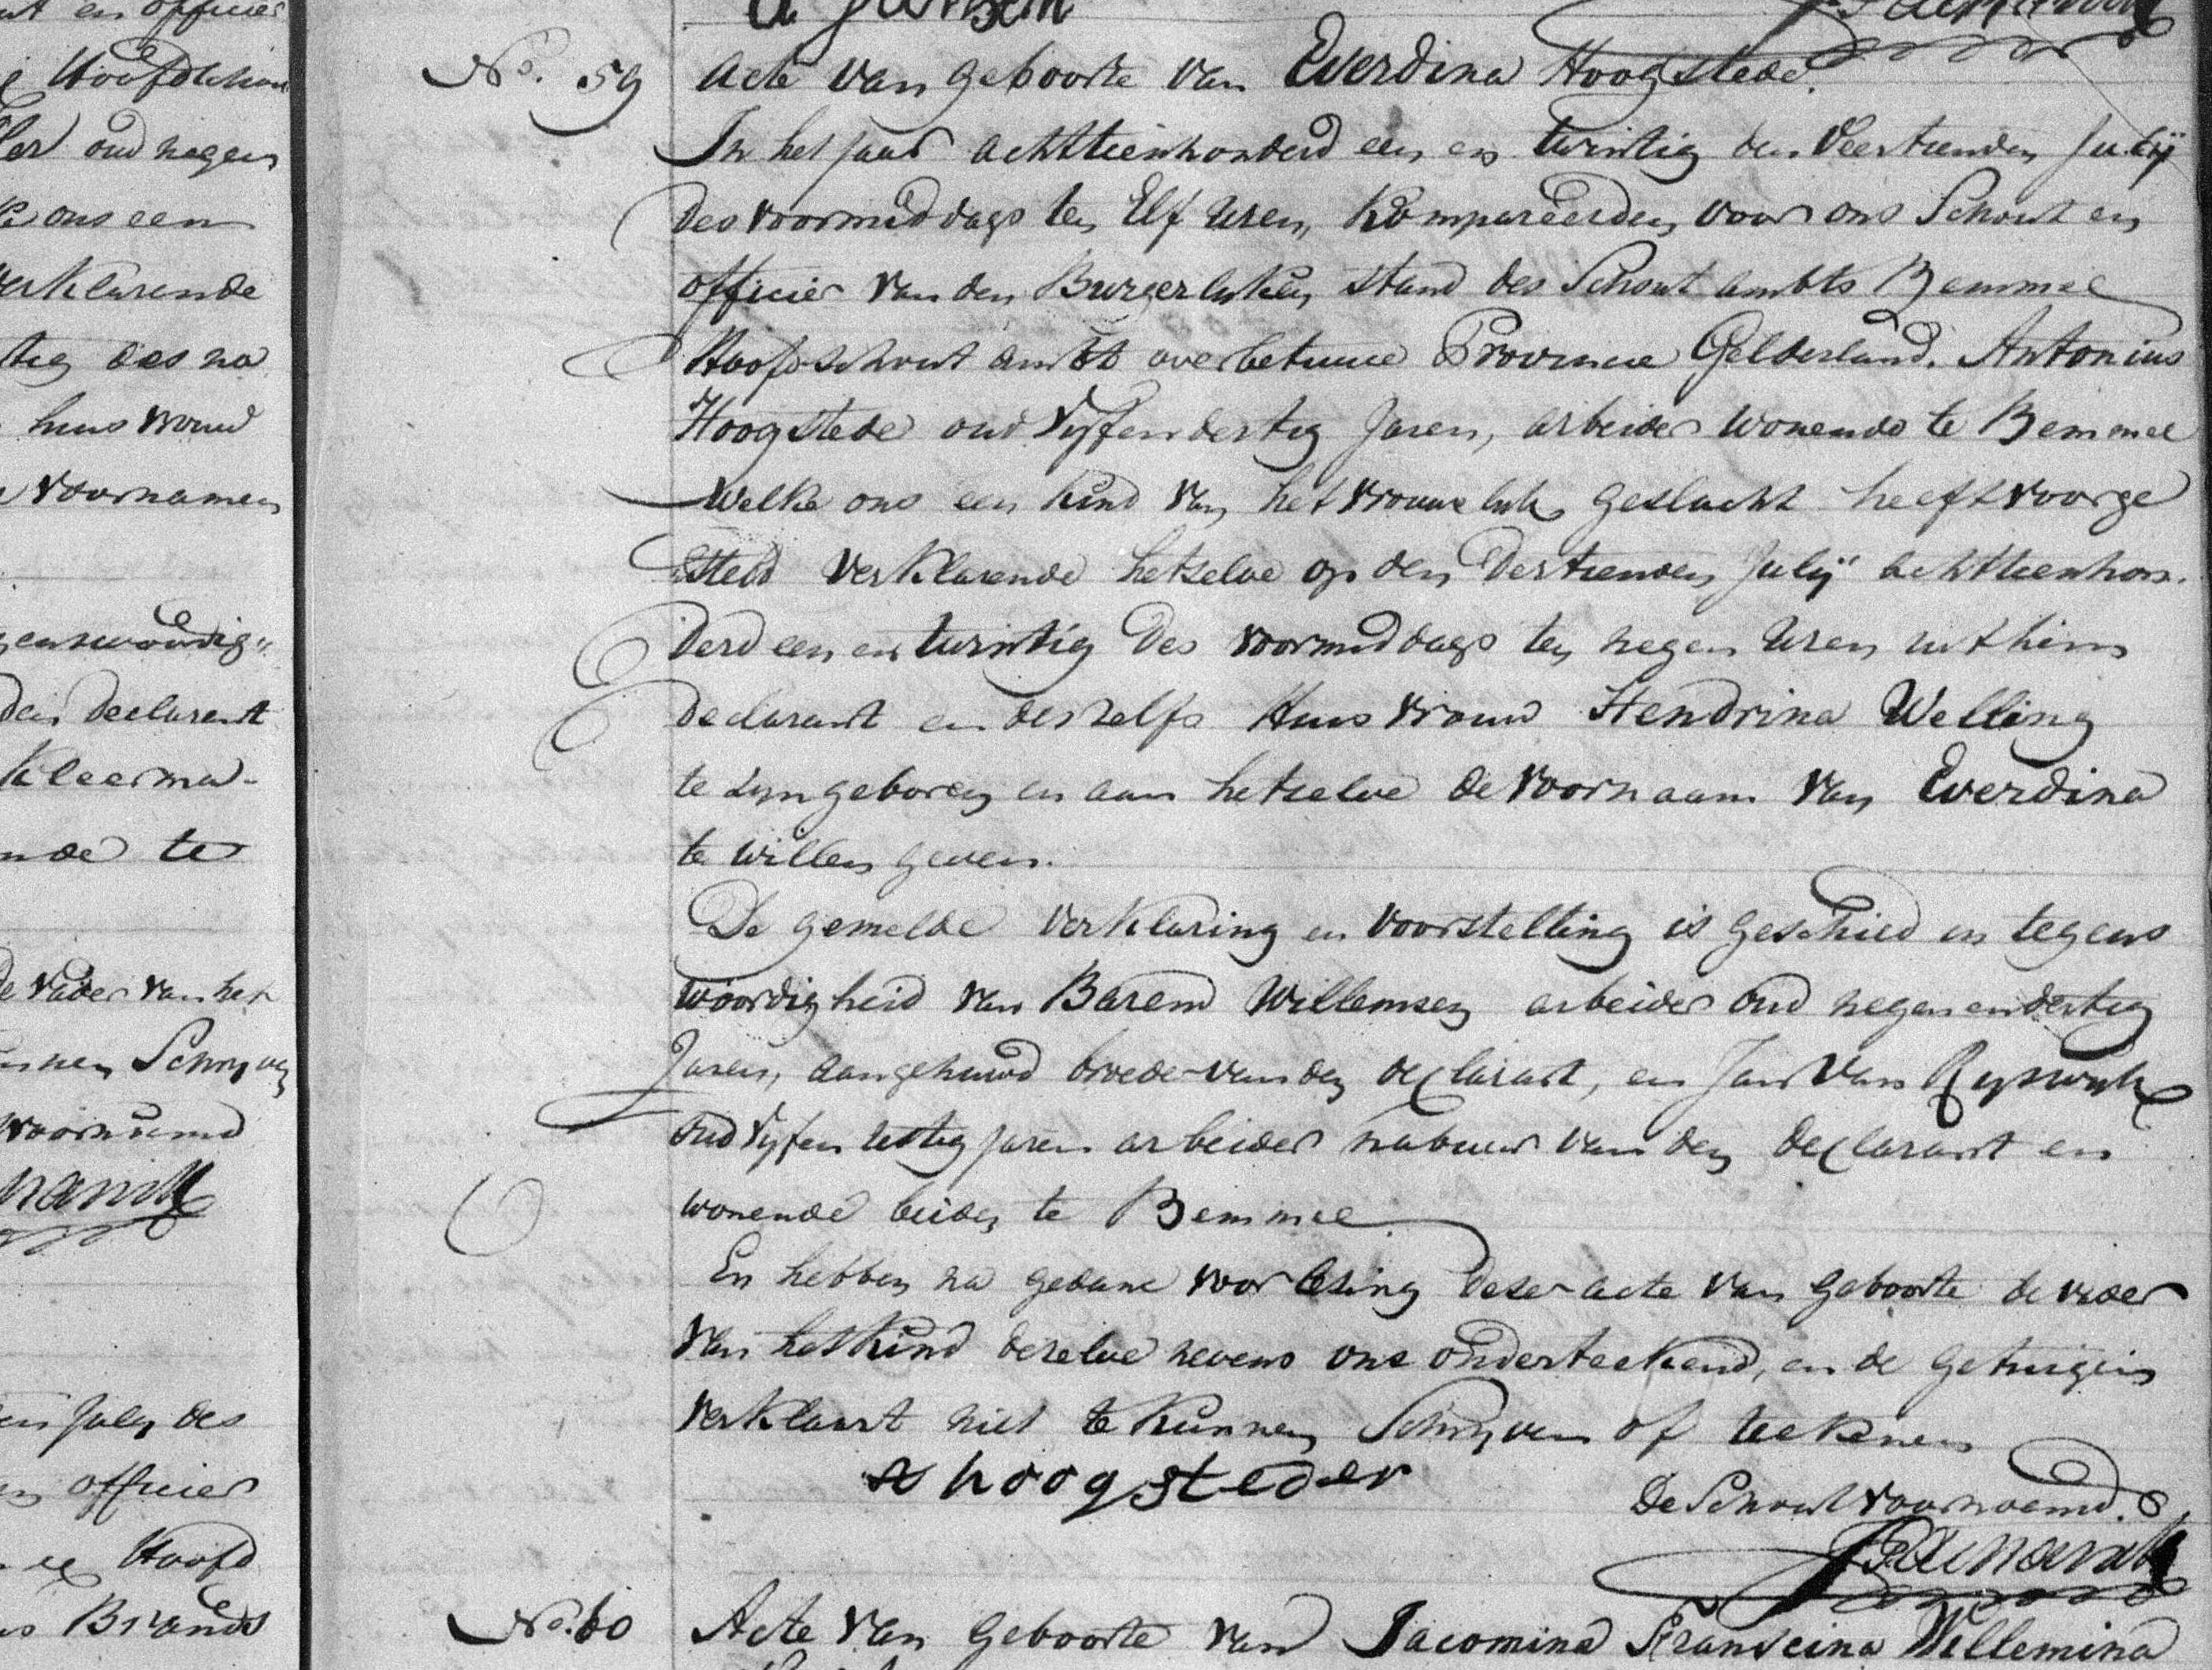 No. 59 Acte van geboorte van Everdina Hoogstede.
In het jaar achttienhonderd een en twintig den Veertienden Julij
des voormiddags ten Elf uren, kompareerden voor ons Schout en
officier van den Burgerlyken stand des Schout ambts Bemmel
Hoofdschout ambt overbetuwe Provincie Gelderland. Antonius
Hoogstede oud vyfendertig Jaren, arbeider wonende te Bemmel
welke ons een kind van het vrouwelyk geslacht heeft voorge
steld verklarende hetzelve op den dertienden Julij achttienhon-
derd een en twintig des voormiddags ten negen uren uit hem
declarant en deszelfs Huisvrouw Hendrina Welling
te zyn geboren en aan hetzelve de voornaam van Everdina
te willen geven.
De gemelde verklaring en voorstelling is geschied in tegens
woordigheid van Barend Willemsen arbeider oud negenendertig
Jaren, aangehuwd broeder van den declarant, en Jan van Ryswyk
oud vyfen jaren arbeider nabuur van den declarant en
wonende beiden te Bemmel
En hebben na gedane voorlezing dezer acte van geboorte de vader
van het kind dezelve nevens ons onderteekend, en de getuigen
verklaart niet te kunnen Schryven of teekenen
hoogsteder
De Schout voornoemd.
No. 60 Acte van geboorte van Jacomina Franscina Willemina
een officier
Hoofdschout
oud negen
ons een
verklarende
tig des na
huisvrouw
voornamen
genswoordig
den declarant
kleerma-
nde te
de vader van het
kunnen Schryven
voornoemd
en July des
en officier
Hoofd
Brands